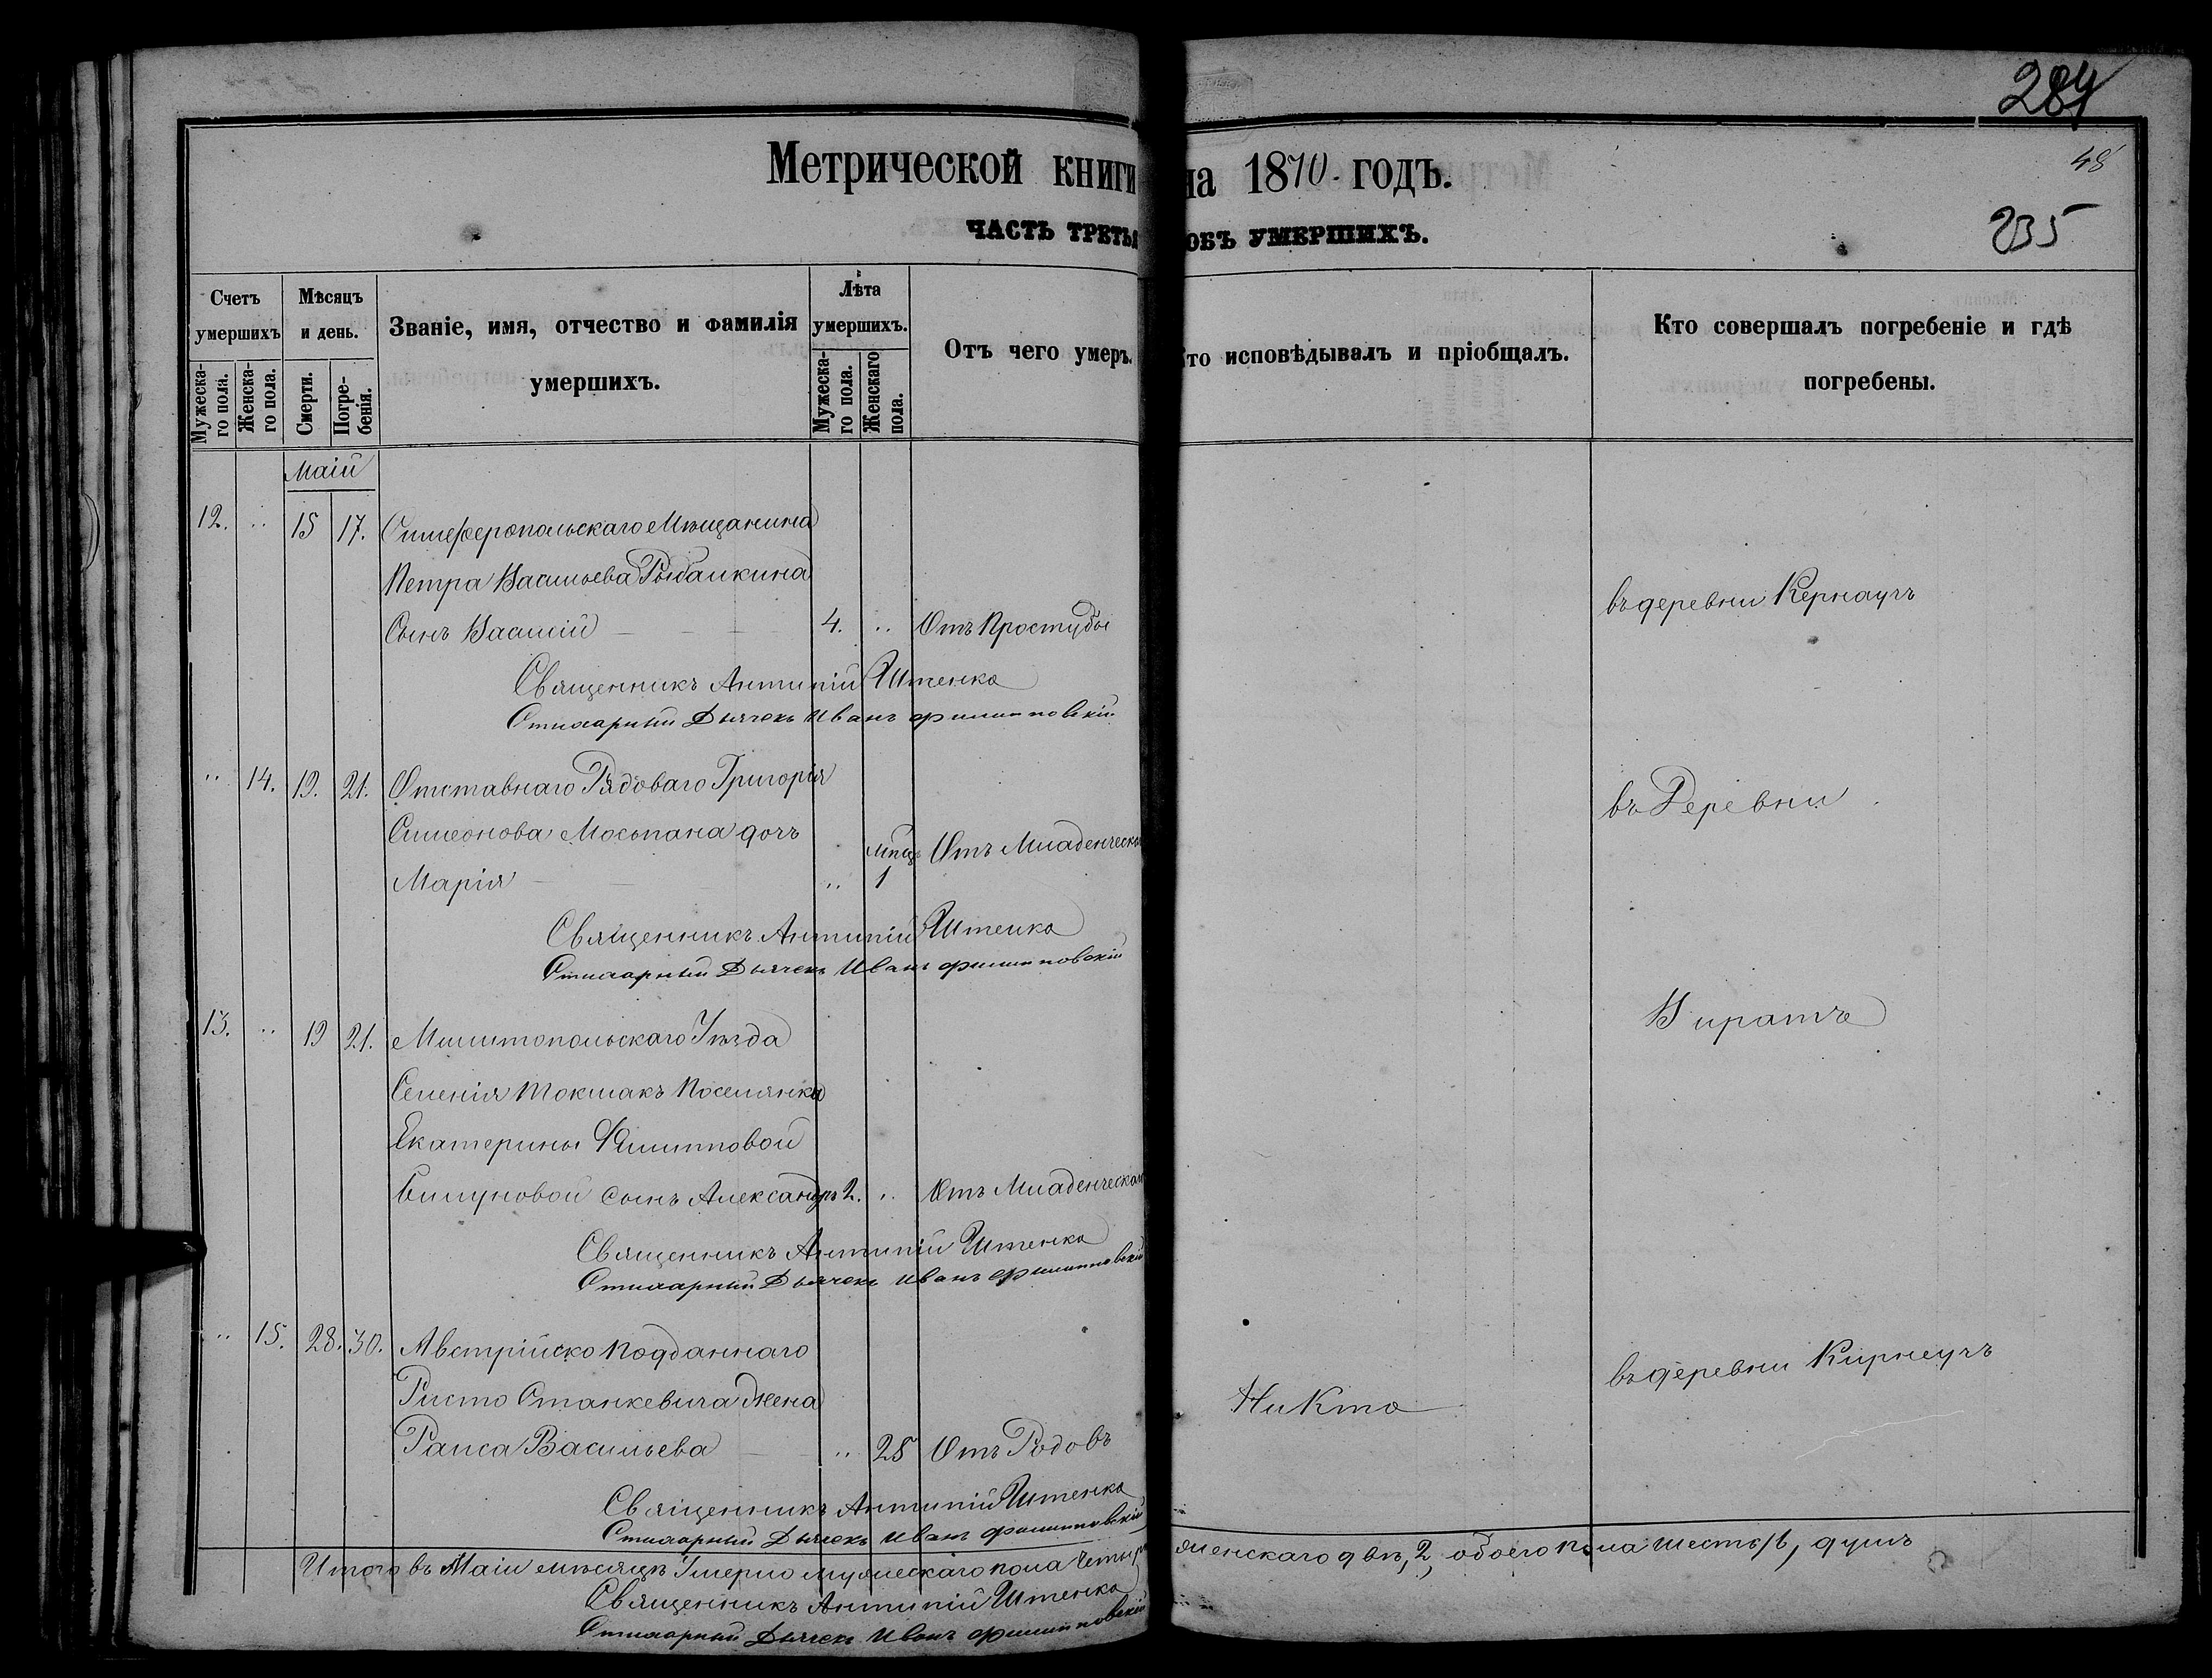 284
48
235
Метрической книги на 1870 годъ.
ЧАСТЬ ТРЕТЬЯ ОБЪ УМЕРШИХЪ.
Счетъ умершихъ
Мѣсяцъ и день.
Званіе, имя, отчество и фамилія умершихъ.
Лѣта умершихъ.
Отъ чего умеръ.
Кто исповѣдывалъ и пріобщалъ.
Кто совершалъ погребеніе и гдѣ погребены.
Мужеска-го пола.
Женска-го пола.
Смерти.
Погре-бенія.
Мужеска-го пола.
Женскаго пола.
Маій
12. " 15 17. Симферопольскаго Мѣщанина
Петра Васильева Рыбалкина
Сынъ Василій 4. " Отъ Простуды
въ деревни Кернаучъ
Священникъ Антипій Итенко
Стихарный Дьячекъ Иванъ Филипповскій
" 14. 19. 21. Отставнаго Рядоваго Григорія
въ Деревни
Симеонова Мосьпана дочь
Марія " Мѣсяц 1 Отъ Младенческой
Священникъ Антипій Итенко
Стихарный Дьячекъ Иванъ Филипповскій
13. " 19 21. Милитопольскаго Уѣзда
Биратъ
Селенія Токмакъ Поселянка
Екатерины Филипповой
сынъ Александръ 2. " Отъ Младенческой
Священникъ Антипій Итенко
Стихарный Дьячекъ Иванъ Филипповскій
" 15. 28. 30. Австрійско подданнаго
Ристо Станкевича Жена
Раиса Васильева " 28 Отъ Родовъ
Ни Кто
въ деревни Кирнеучъ
Священникъ Антипій Итенко
Стихарный Дьячекъ Иванъ Филипповскій
Итого въ Маіи мѣсяцѣ Умерло мужескаго пола Четыр женскаго двѣ, 2, обоего пола шесть, душъ
Священникъ Антипій Итенко
Стихарный Дьячекъ Иванъ Филипповскій